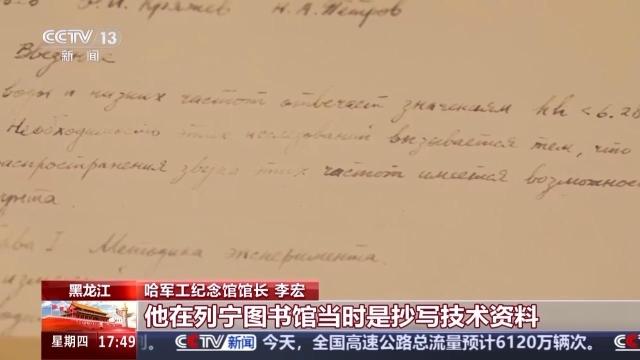 CCTV 13
新闻
Ю.И. Кряжев Н.А. Петров
Введение
воды и низких частот отвечает значениям kh < 6.28
Необходимость этих исследований вызывается тем, что
распространения звука этих частот имеется возможнос
унта.
Глава I Методика эксперимента.
黑龙江
哈军工纪念馆馆长 李宏
他在列宁图书馆当时是抄写技术资料
星期四 17:49
CCTV 新闻 今天，全国高速公路总流量预计6120万辆次。